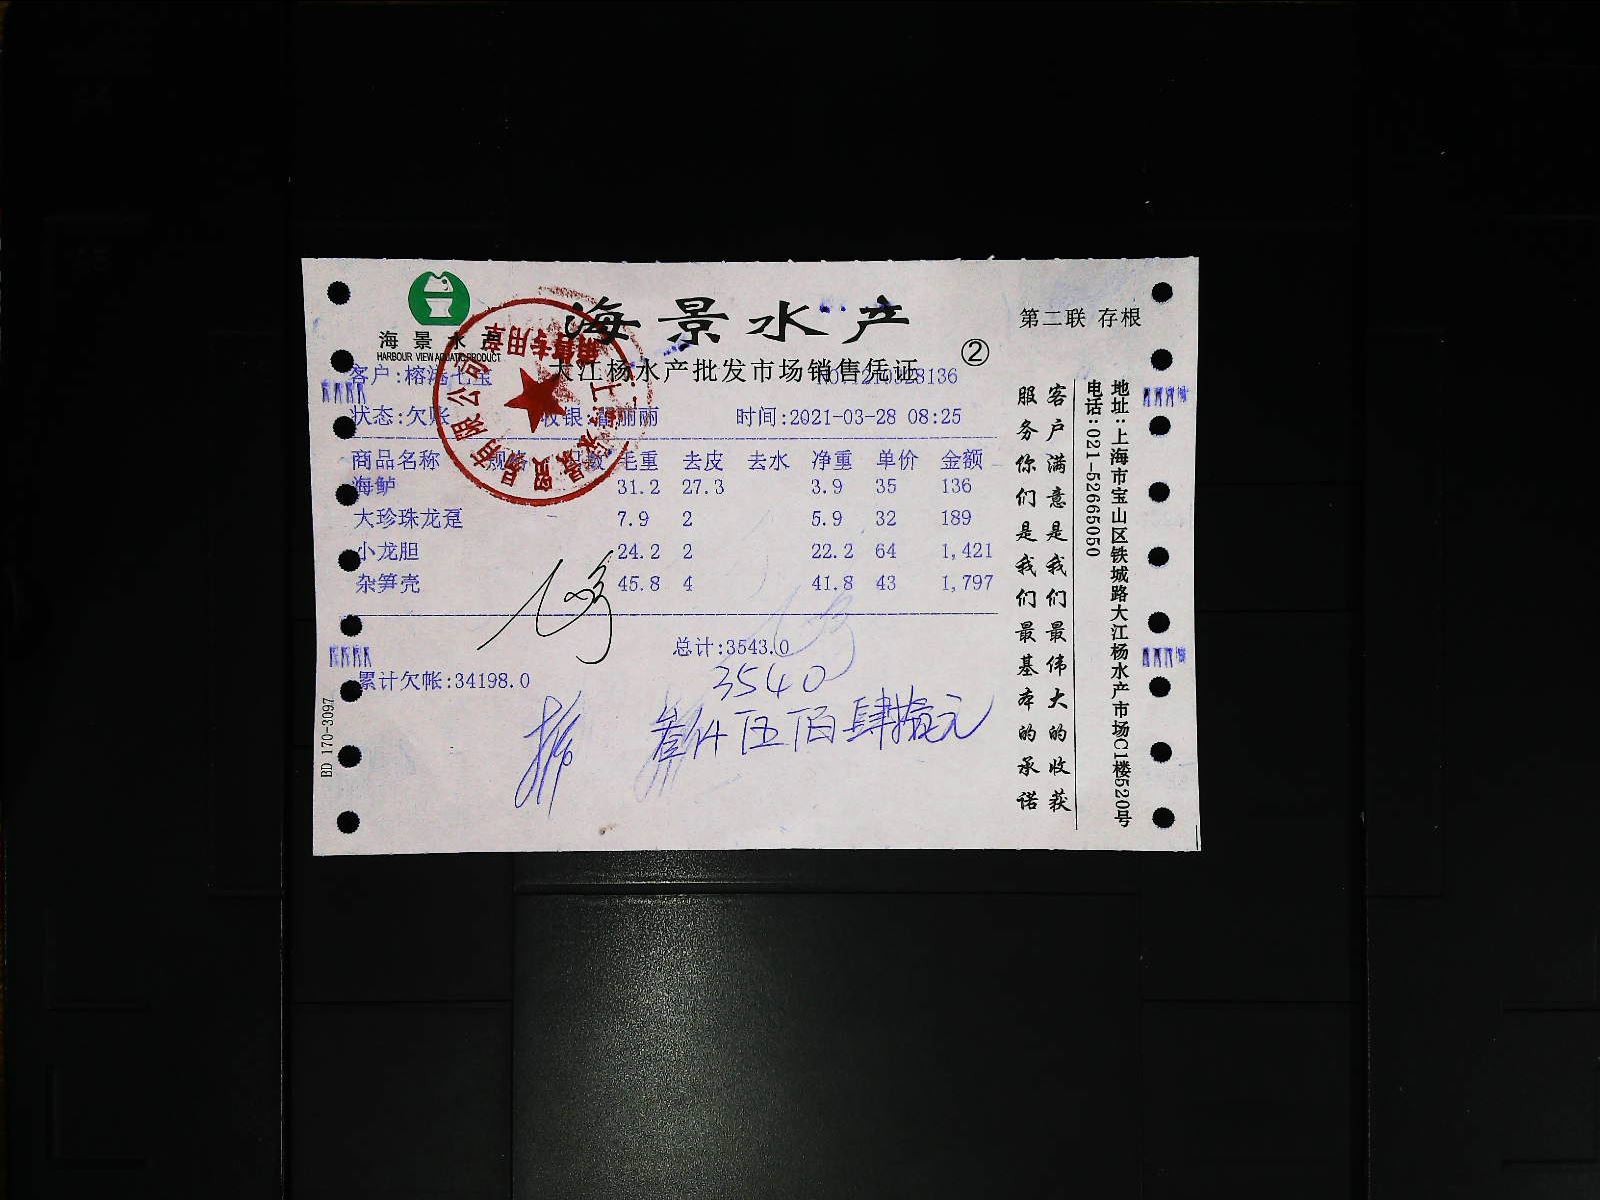 海景水产
海景水产
HARBOUR VIEW AQUATIC PRODUCT
第二联 存根
②
大江杨水产批发市场销售凭证
客户:榕港七宝
状态:欠账 收银: 丽丽 时间:2021-03-28 08:25
商品名称 规格 只数 毛重 去皮 去水 净重 单价 金额
海鲈 31.2 27.3 3.9 35 136
大珍珠龙趸 7.9 2 5.9 32 189
小龙胆 24.2 2 22.2 64 1,421
杂笋壳 45.8 4 41.8 43 1,797
总计:3543.0
3540
累计欠帐:34198.0
叁仟伍佰肆拾元
BD 170-3097
客户满意是我们最伟大的收获
服务你们是我们最基本的承诺
地址:上海市宝山区铁城路大江杨水产市场C1楼520号
电话:021-52665050